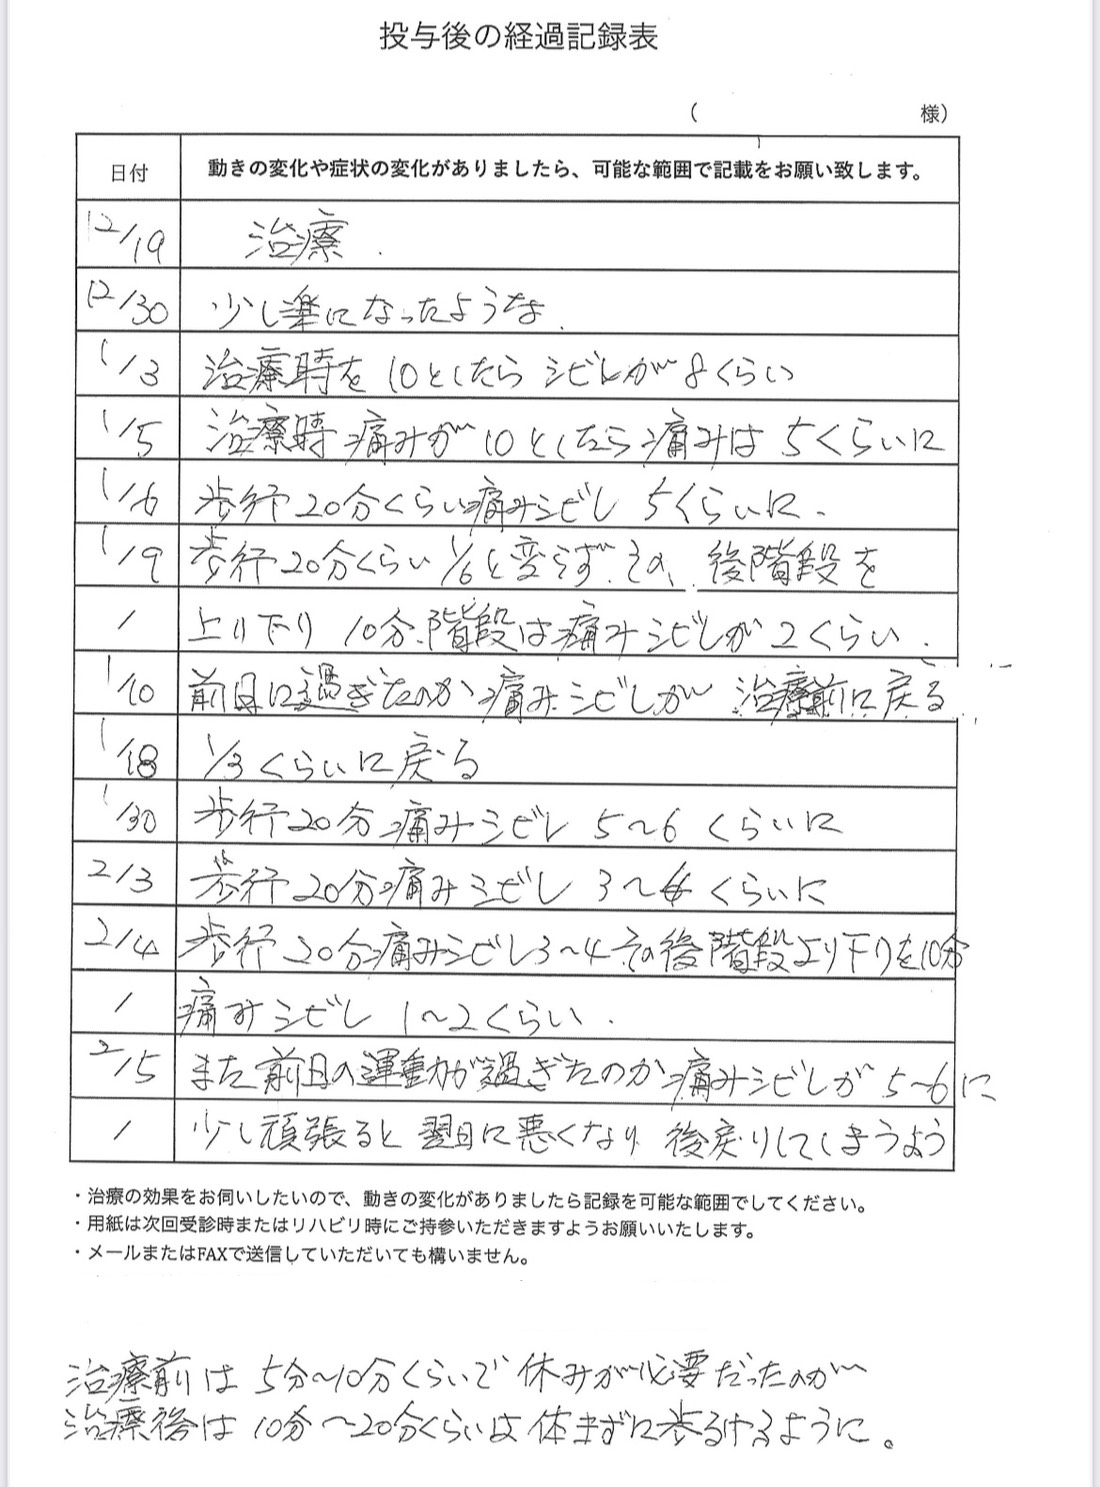 投与後の経過記録表
( 様)
日付 動きの変化や症状の変化がありましたら、可能な範囲で記載をお願い致します。
12/19 治療.
12/30 少し楽になったような.
1/3 治療時を10としたらシビレが8くらい
1/5 治療時痛みが10としたら痛みは5くらいに
1/6 歩行20分くらい痛みシビレ 5くらいに.
1/9 歩行20分くらい1/6と変らず.その、後階段を
/ 上り下り 10分.階段は痛みシビレが2くらい.
1/10 前日に過ぎたのか痛みシビレが 治療前に戻る
1/18 1/3くらいに戻る
1/30 歩行20分痛みシビレ 5〜6くらいに
2/3 歩行20分痛みシビレ 3〜4くらいに
2/4 歩行20分痛みシビレ3〜4その後階段上り下りを10分
/ 痛みシビレ 1〜2くらい.
2/5 また前日の運動が過ぎたのか痛みシビレが5〜6に
/ 少し頑張ると翌日に悪くなり後戻りしてしまうよう
・治療の効果をお伺いしたいので、動きの変化がありましたら記録を可能な範囲でしてください。
・用紙は次回受診時またはリハビリ時にご持参いただきますようお願いいたします。
・メールまたはFAXで送信していただいても構いません。
治療前は5分〜10分くらいで休みが必要だったのが
治療後は10分〜20分くらいは休まずに歩るけるように。